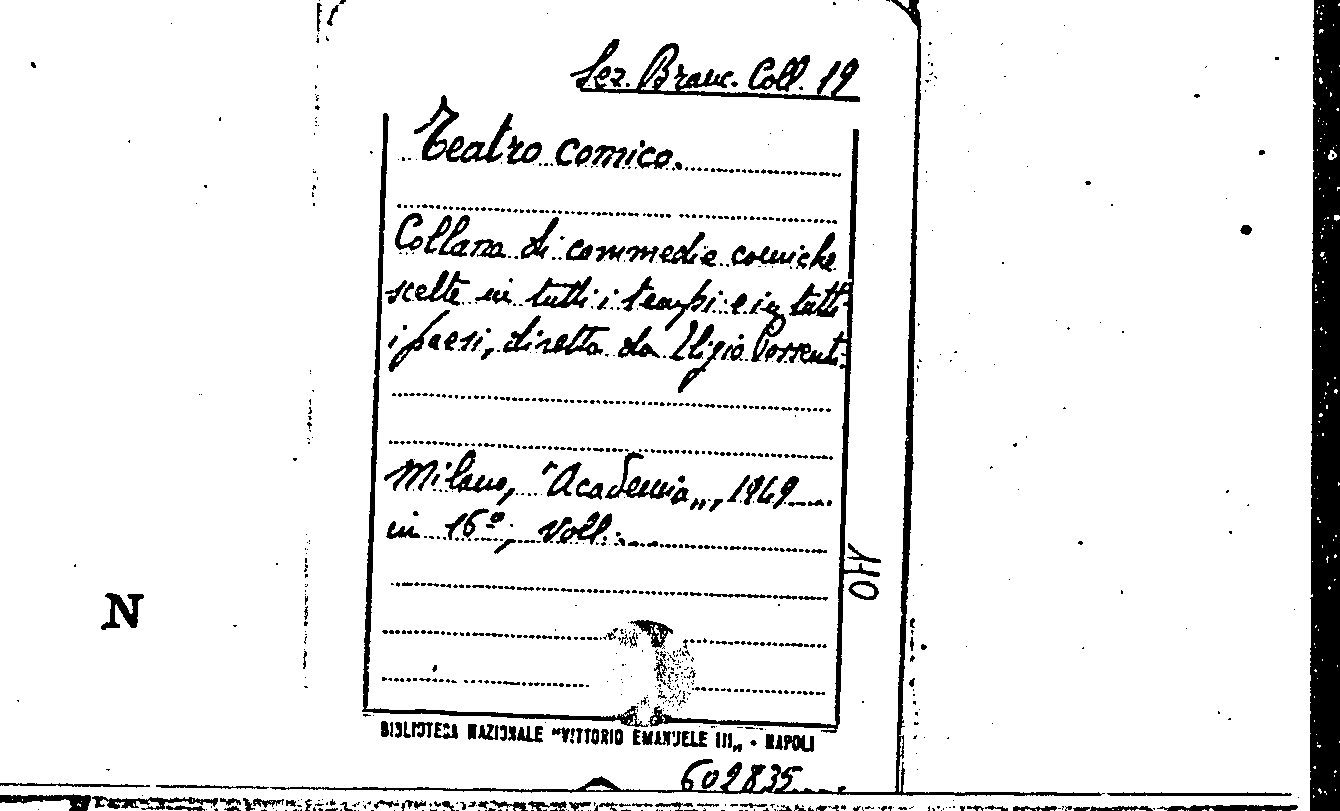 Sez. Branc. Coll. 19
Teatro comico.
Collana di commedie comiche
scelte in tutti i tempi e in tutti
i paesi, diretta da Eligio Possenti.
Milano, "Academia„, 1949....
in 16º, voll....
N
BIBLIOTECA NAZIONALE "VITTORIO EMANUELE III„ - NAPOLI
602835....